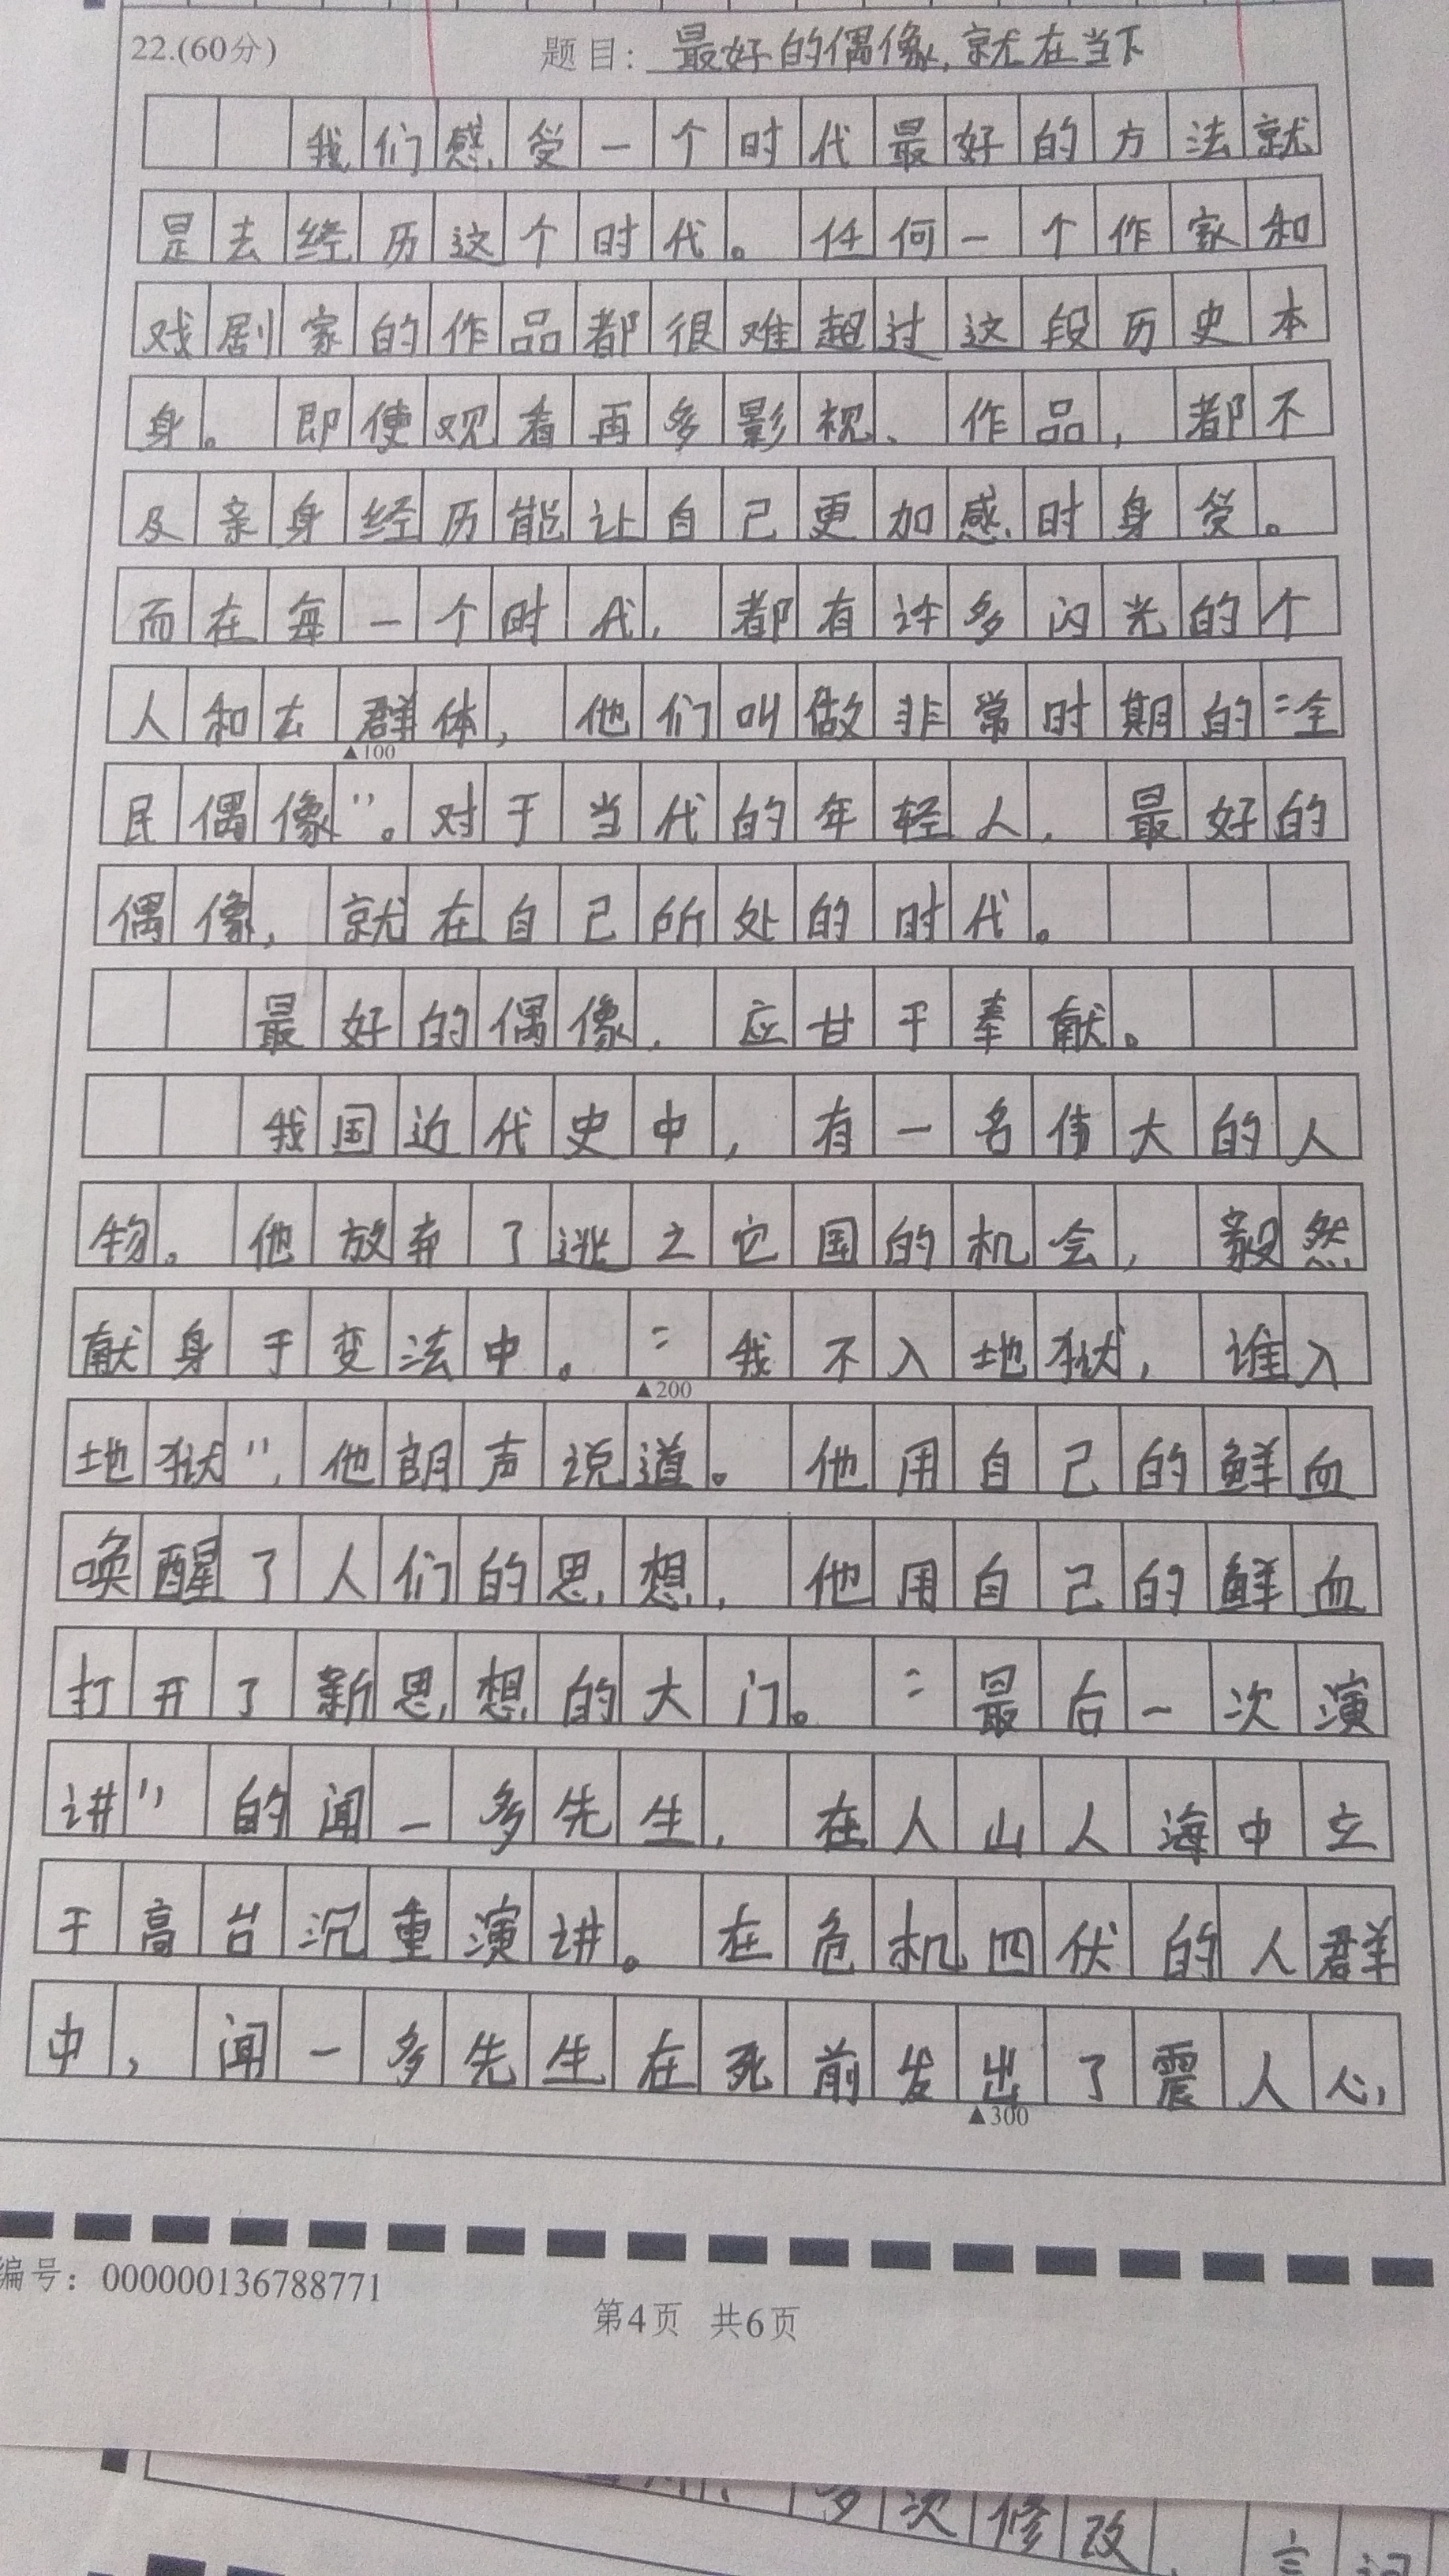 22.(60分) 题目: 最好的偶像,就在当下
我们感受一个时代最好的方法就
是去经历这个时代。任何一个作家和
戏剧家的作品都很难超过这段历史本
身。即使观看再多影视、作品,都不
及亲身经历能让自己更加感时身受。
而在每一个时代,都有许多闪光的个
人和去群体,他们叫做非常时期的“全
民偶像”。对于当代的年轻人,最好的
偶像,就在自己所处的时代。
最好的偶像,应甘于奉献。
我国近代史中,有一名伟大的人
物。他放弃了逃之它国的机会,毅然
献身于变法中。“我不入地狱,谁入
▲100
地狱”,他朗声说道。他用自己的鲜血
▲200
唤醒了人们的思想,他用自己的鲜血
打开了新思想的大门。“最后一次演
讲”的闻一多先生,在人山人海中立
于高台沉重演讲。在危机四伏的人群
中,闻一多先生在死前发出了震人心,
▲300
编号: 000000136788771
第4页 共6页
多次修改
言词